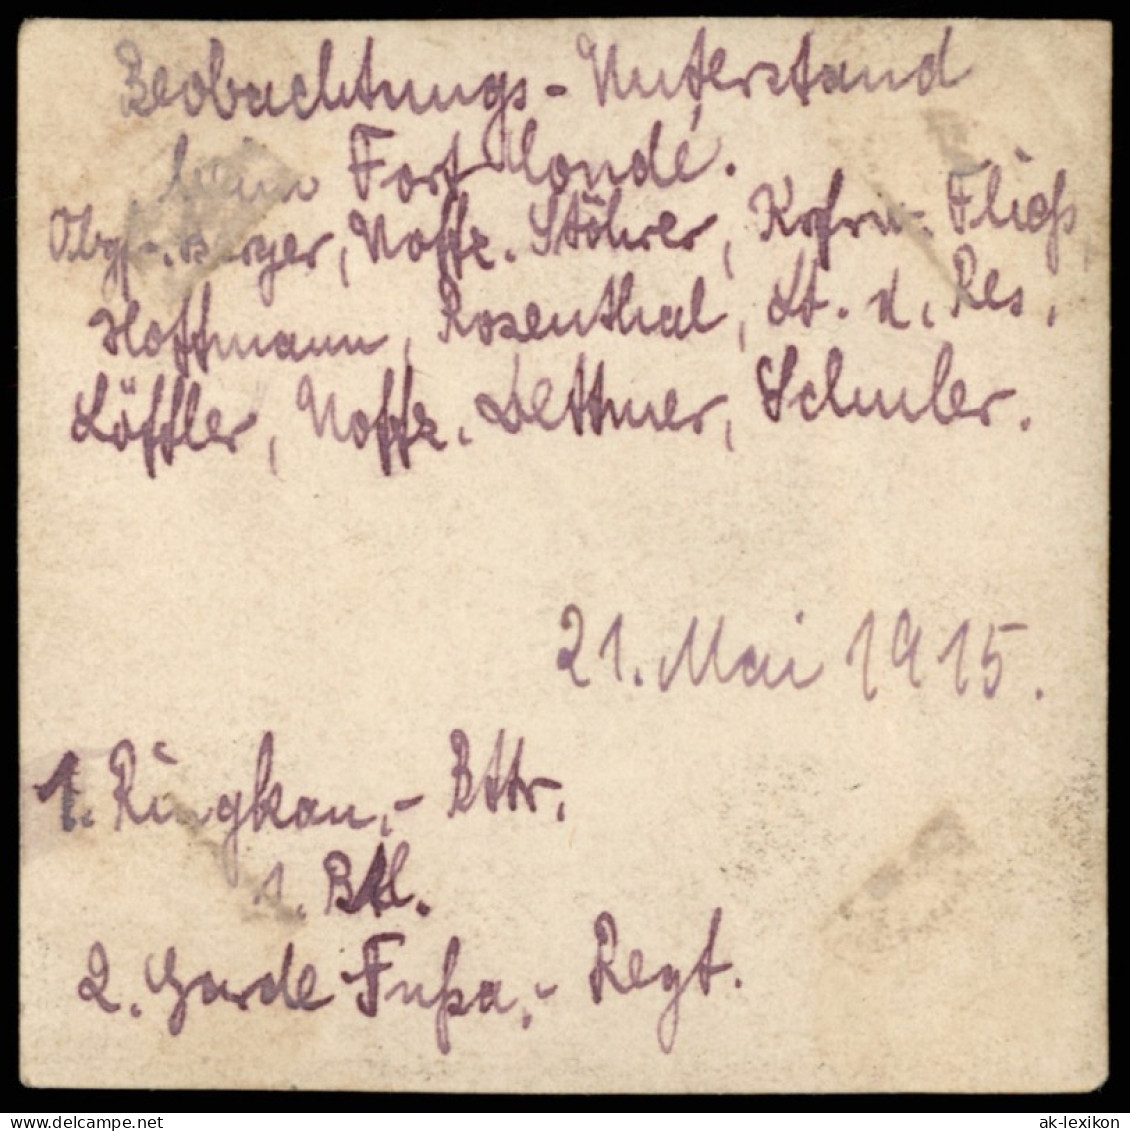 Beobachtungs-Unterstand
beim Fort Condé.
Obgfr. Berger, Uoffz. Stöhrer, Fließ
Hoffmann, Rosenthal, Lt. d. Res.
Löffler, Uoffz. Dettmer, Schuler.
21. Mai 1915.
1. Ringkan.- Bttr.
1. Btl.
2. Garde Fußa.- Regt.
ak-lexikon